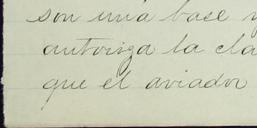 son una base y
autoriza la cla
que el aviador